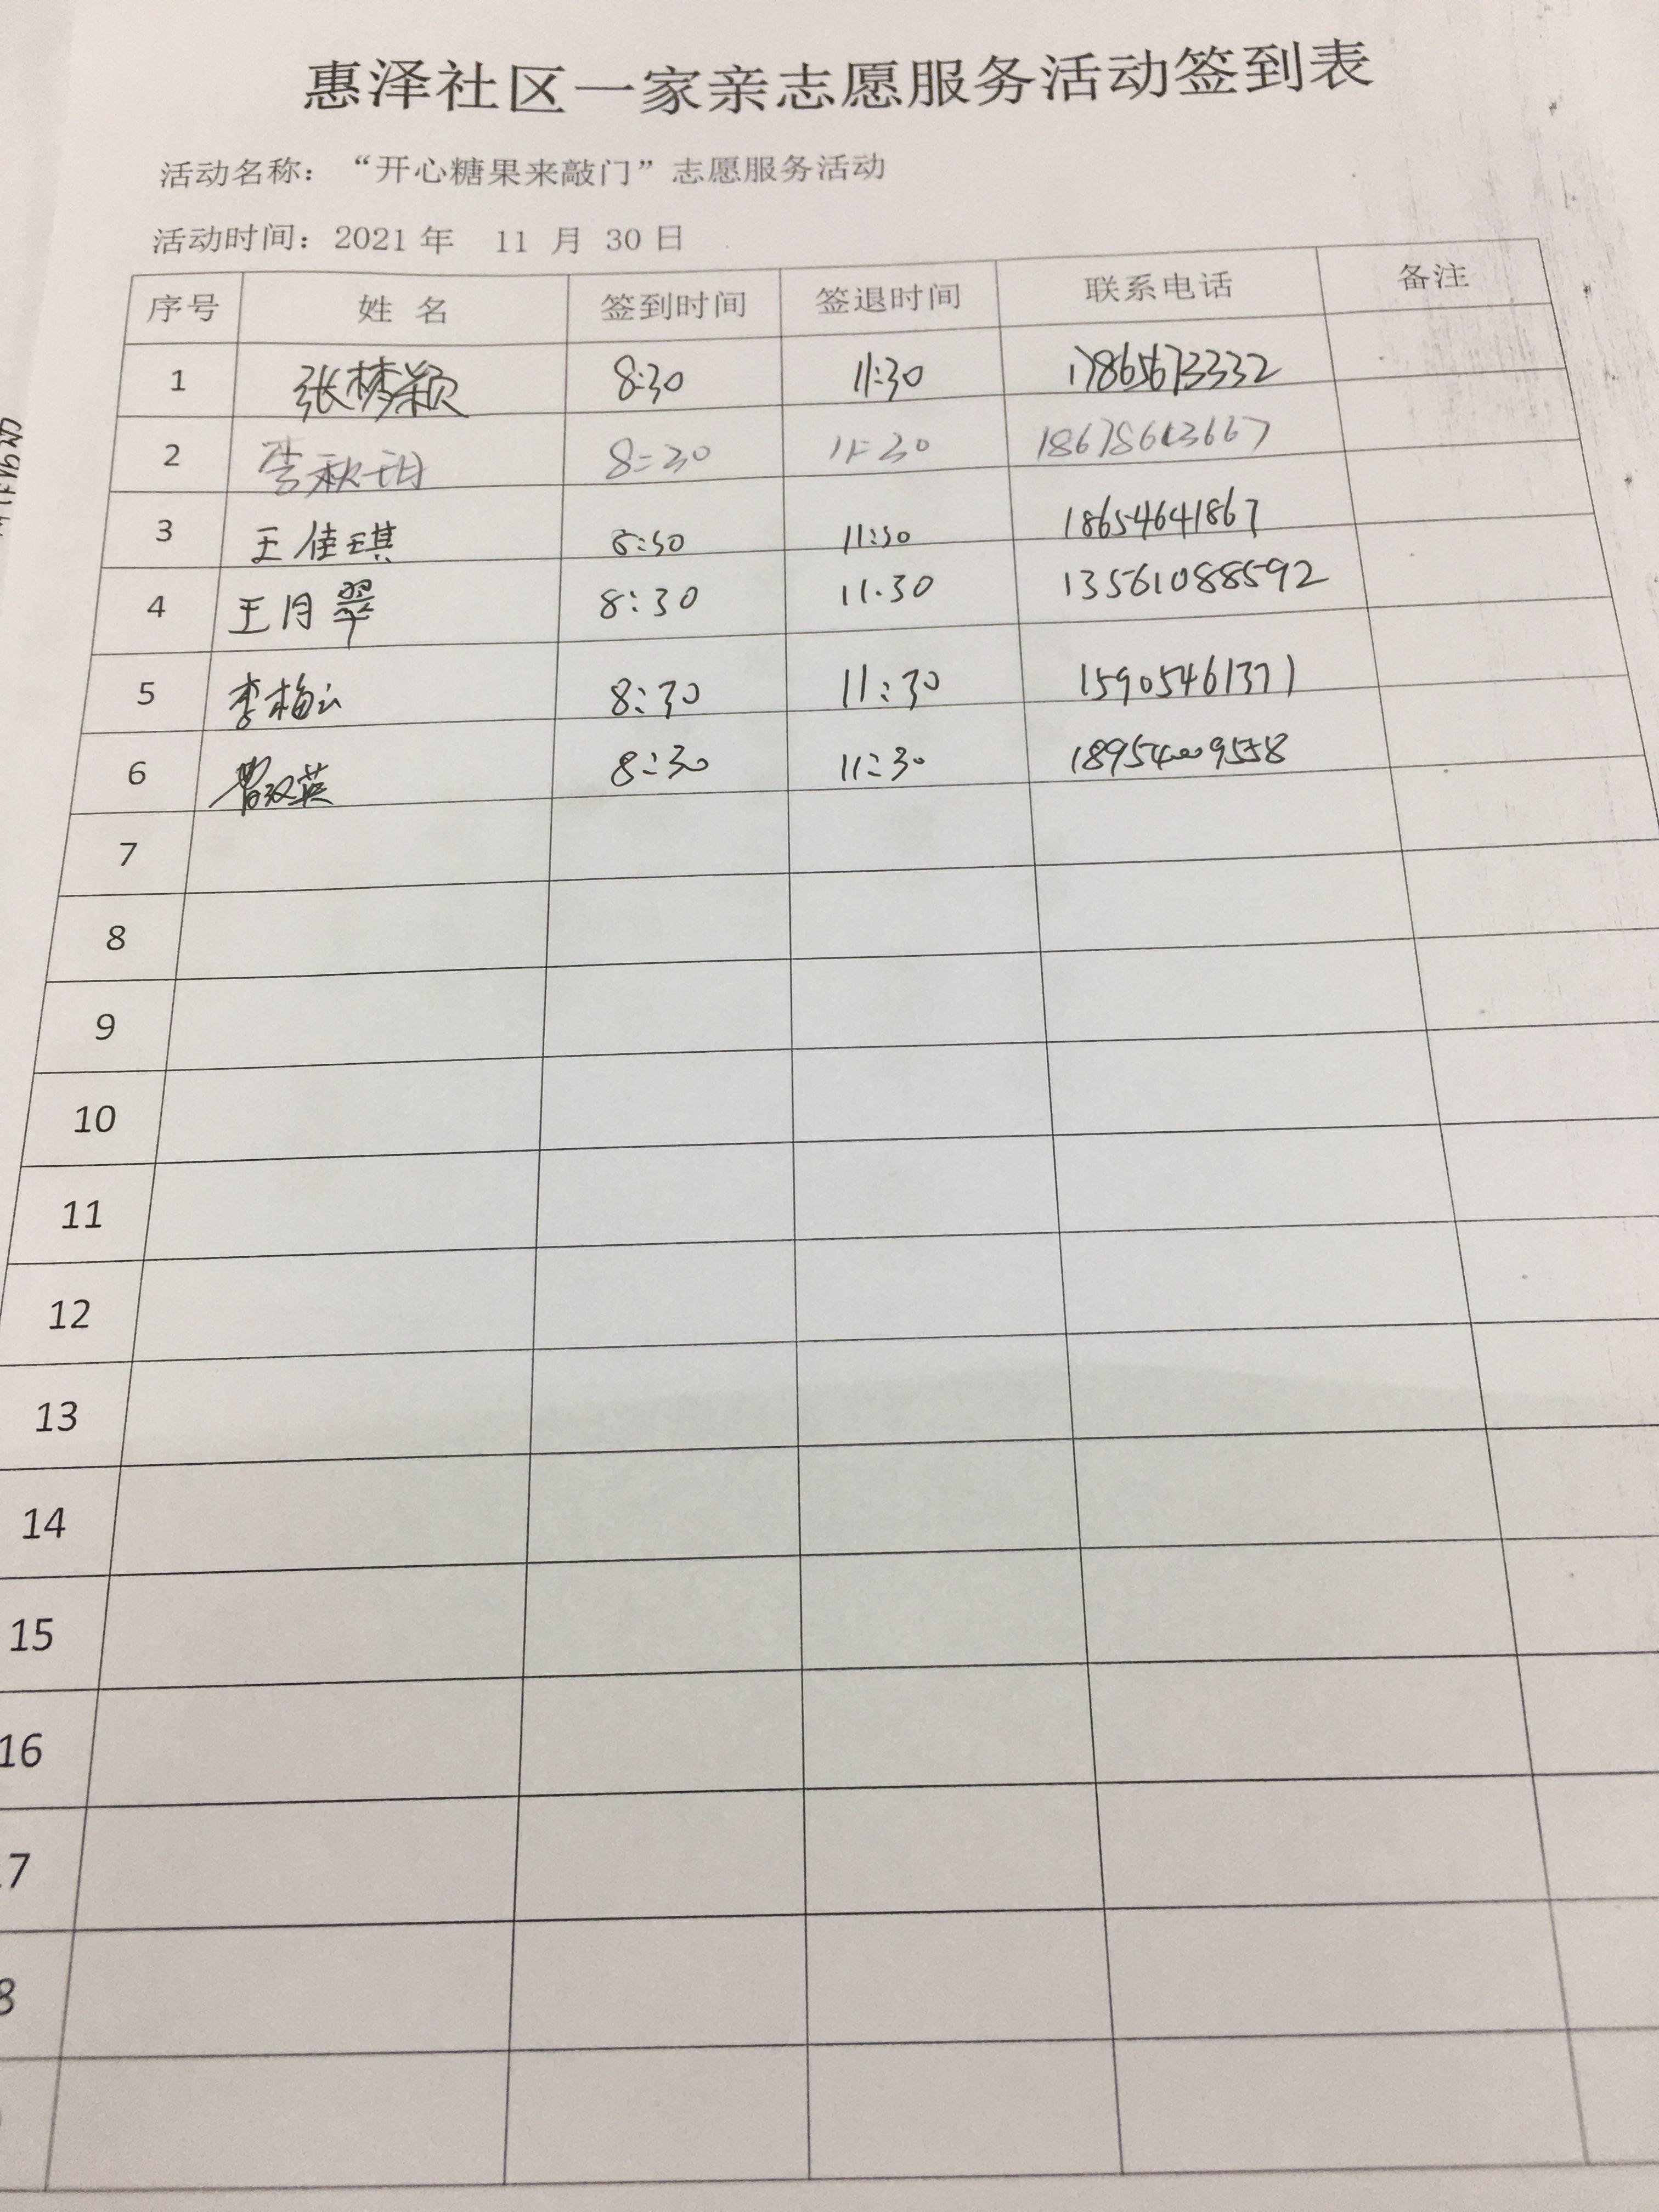 惠泽社区一家亲志愿服务活动签到表
活动名称：“开心糖果来敲门”志愿服务活动
活动时间：2021 年 11 月 30 日
序号 姓 名 签到时间 签退时间 联系电话 备注
1 张梦颖 8:30 11:30 17865673332
2 李秋玥 8:30 11:30
3 王佳琪 8:30 11:30 18654641867
4 王月翠 8:30 11.30 13561088592
5 李梅云 8:30 11:30 15905461371
6 8:30 11:30
7
8
9
10
11
12
13
14
15
16